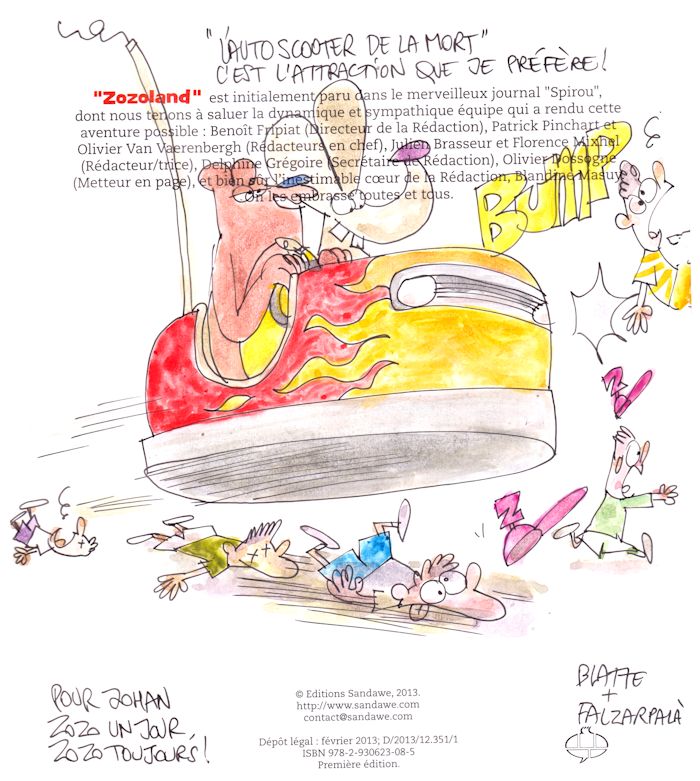 "L'AUTOSCOOTER DE LA MORT"
C'EST L'ATTRACTION QUE JE PRÉFÈRE!
"Zozoland" est initialement paru dans le merveilleux journal "Spirou",
dont nous tenons à saluer la dynamique et sympathique équipe qui a rendu cette
aventure possible : Benoît Fripiat (Directeur de la Rédaction), Patrick Pinchart et
Olivier Van Vaerenbergh (Rédacteurs en chef), Julien Brasseur et Florence Mixhel
(Rédacteur/trice), Delphine Grégoire (Secrétaire de Rédaction), Olivier Dossogne
(Metteur en page), et bien sûr l'inestimable cœur de la Rédaction, Blandine Masuy.
On les embrasse toutes et tous.
BUMP
POUR JOHAN
ZOZO UN JOUR
ZOZO TOUJOURS!
© Editions Sandawe, 2013.
http://www.sandawe.com
contact@sandawe.com
Dépôt légal : février 2013; D/2013/12.351/1
ISBN 978-2-930623-08-5
Première édition.
BLATTE
+
FALZARPALÀ